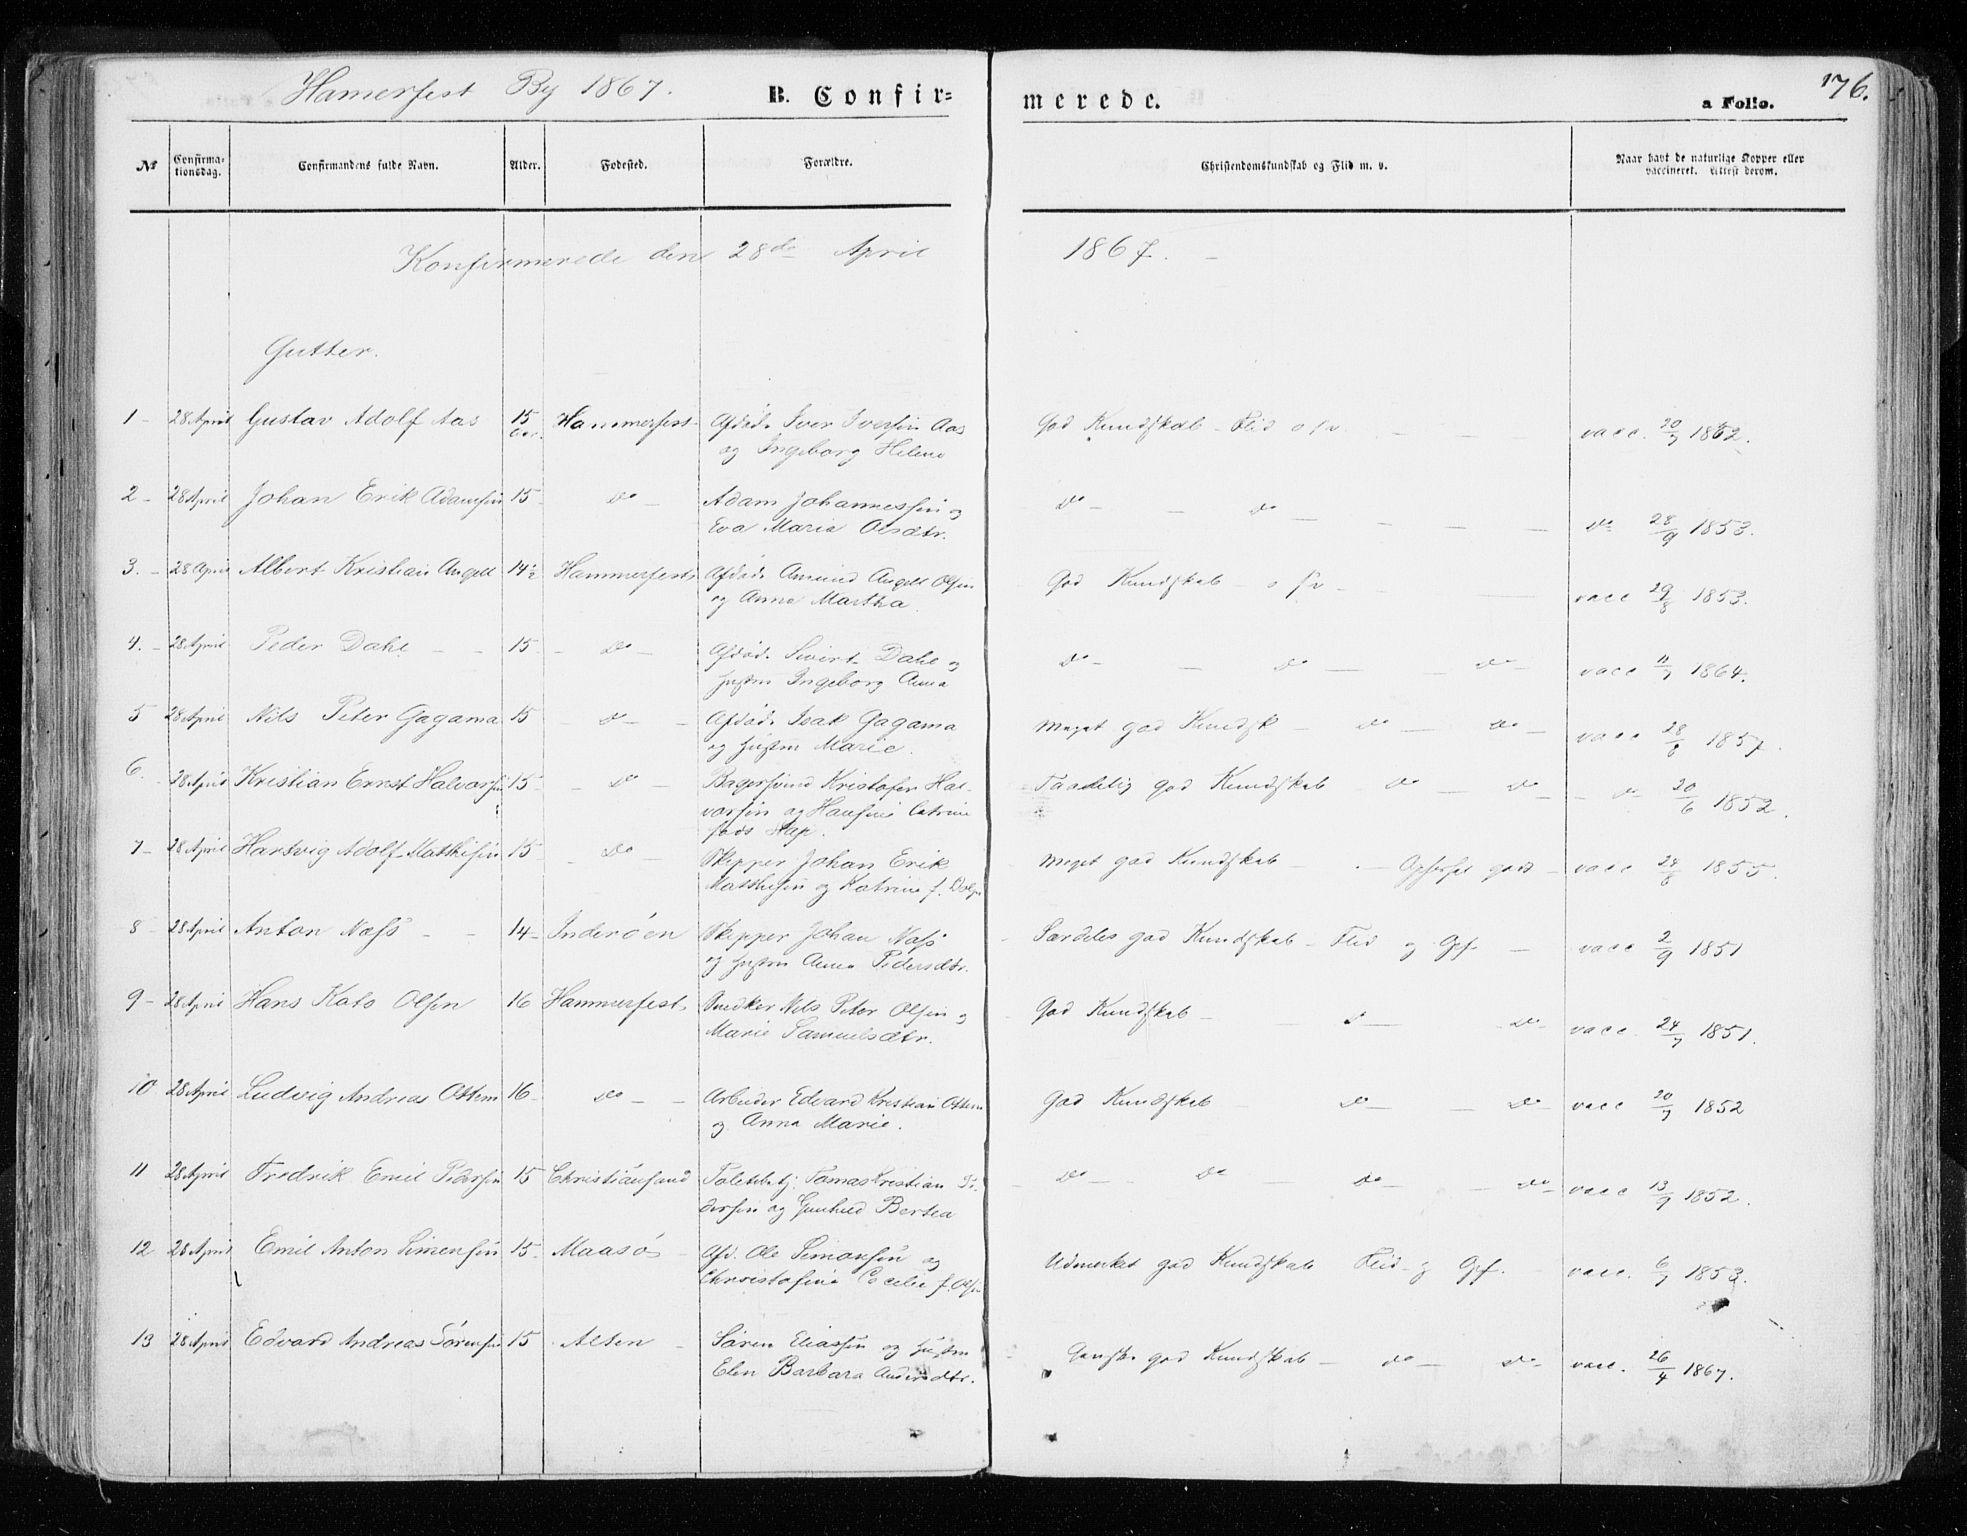 Hamerfest By 1867.
B. Confir=
merede.
176.
a Folio.
No
Confirma-
tionsdag.
Confirmandens fulde Navn.
Alder.
Fødested.
Forældre.
Christendomskundskab og Flid m. v.
Naar havt de naturlige Kopper eller
vaccineret. Attest derom.
Konfirmerede den 28de April 1867.
Gutter.
1 - 28 April Gustav Adolf Aas 15 Aar. Hammerfest Afdød. Iver Iversen Aas God Kundskab - Flid o s v. vacc. 20/7 1862.
og Ingeborg Helene
2 - 28 April Johan Erik Adamsen 15 - Do - Adam Johannessen og Do - Do - Do 28/9 1853.
Eva Maria Olsdtr.
3. - 28 April Albert Kristian Angell 14½ Hammerfest Afdød. Amund Angell Olsen God Kundskab - o s v - vacc 29/8 1853.
og Anne Martha.
4. - 28 April Peder Dahl - - 15 - Do - Afdød. Sivert Dahl og Do - Do - Do vacc 11/7 1864.
Hustru Ingeborg Anna
5 28 April Nils Peter Gagama 15 - Do - Afdød. Isak Gagama Meget god Kundsk - Do - Do - vacc 28/8 1857.
og Hustru Marie.
6. 28 April Kristian Ernst Halvorsen 15 - Do - Bagersvend Kristofer Hal- Taalelig god Kundskab - Do - Do - Do 20/6 1852.
vorsen og Hansine Catrine
føds Hap.
7 - 28 April Hartvig Adolf Mathisen 15 - Do - Skipper Johan Erik Meget god Kundskab - Opførsel god - vacc 24/8 1855.
Mathisen og Katrine f. Dahl
8 - 28 April Anton Næss - - 14 - Inderøen Skipper Johan Næss Særdeles god Kundskab - Flid og Opf. - vacc 2/9 1851
og Hustru Anna Pedersdtr.
9 - 28 April Hans Kato Olsen 16 Hammerfest. Snedker Nils Peter Olsen og God Kundskab - Do - Do - vacc. 24/7 1851.
Marie Samuelsdtr.
10 28 April Ludvig Andreas Ottem 16 - Do - - Arbeider Edvard Kristian Ottem God Kundskab - Do - Do - vacc 20/7 1852
og Anna Marie.
11 28 April Fredrik Emil Pedersen 15 Christiansund Toldbetj. Tomas Kristian Pe- Do - Do - Do - Do - vacc 13/7 1852.
dersen og Gunhild Bertea
12 28 April Emil Anton Simensen 15 - Maasø - Afd. Ole Simonsen og Udmerket god Kundskab Flid og Opf. vacc. 6/7 1853.
Christofine Cecelie f. Olsen
13 28 April Edvard Andreas Sørensen 15 Alten - Søren Eliassen og Hustru Ganske god Kundskab - Do - Do - vacc. 26/4 1867.
Elen Barbara Andersdtr.